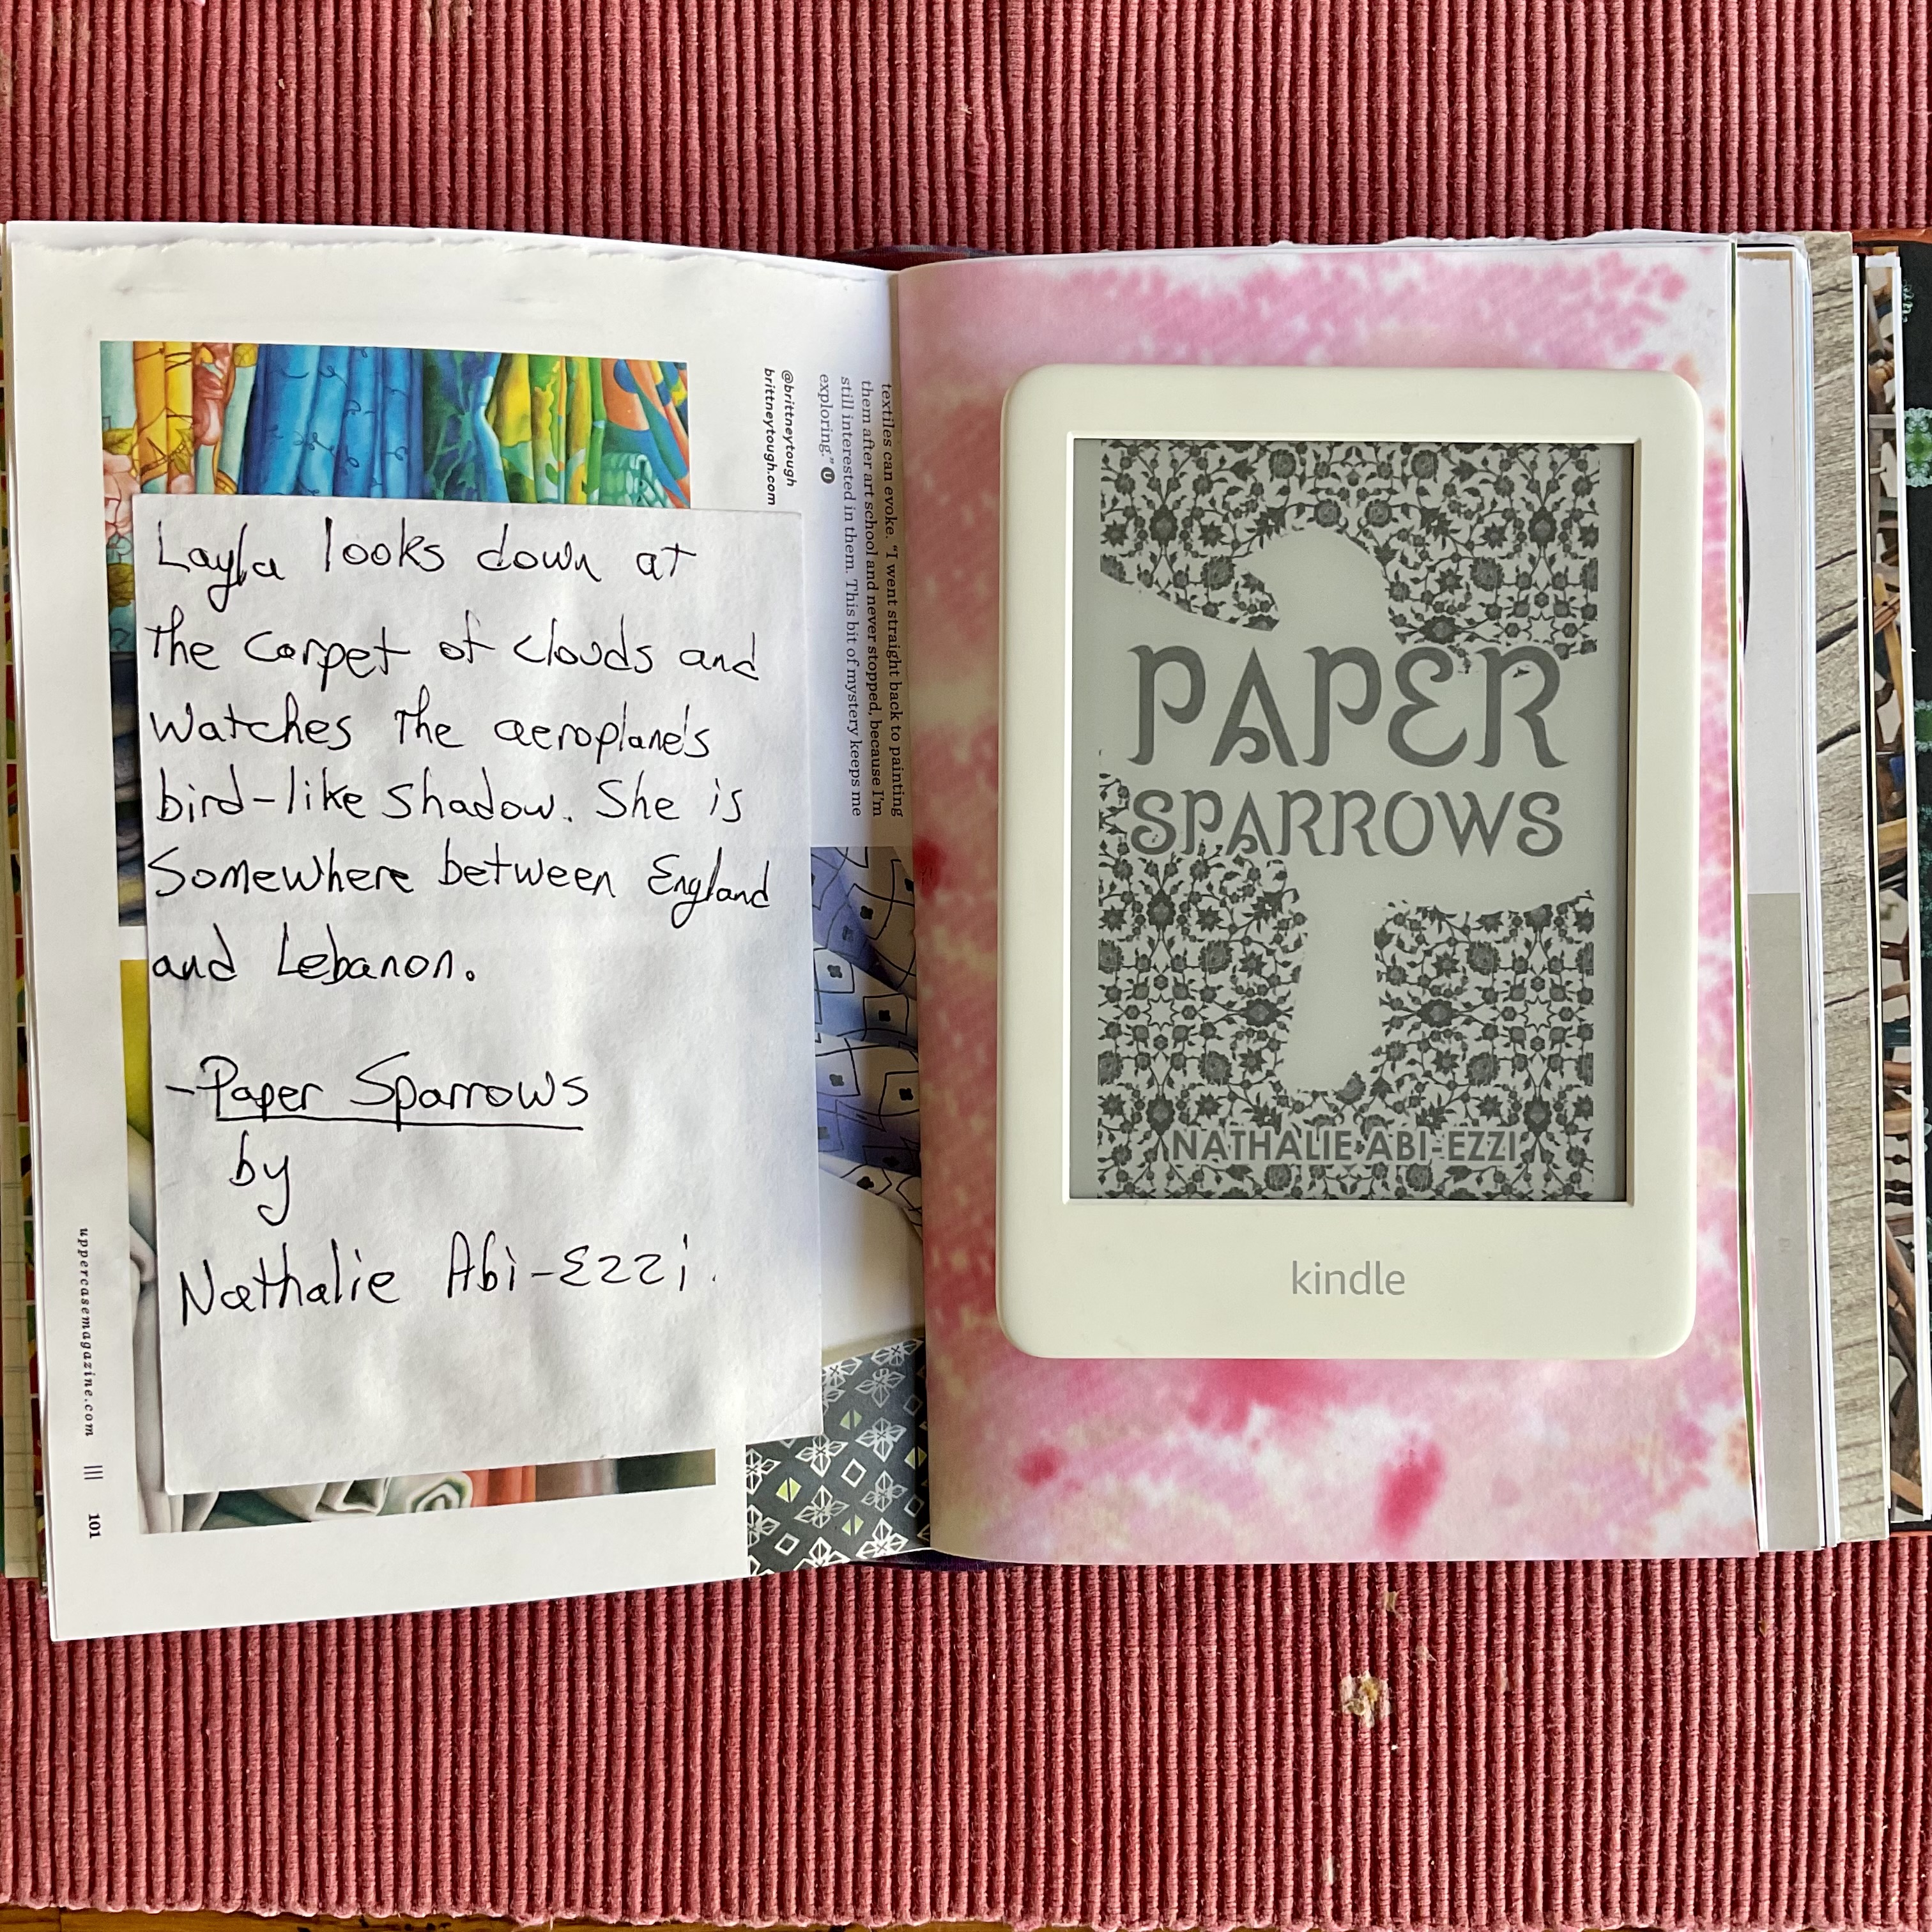 Layla looks down at
the carpet of clouds and
watches the aeroplane's
bird-like shadow. She is
Somewhere between England
and Lebanon.
-Paper Sparrows
by
Nathalie Abi-Ezzi.
textiles can evoke. "I went straight back to painting
them after art school and never stopped, because I'm
still interested in them. This bit of mystery keeps me
exploring." U
@brittneytough
brittneytough.com
uppercasemagazine.com ||| 101
PAPER
SPARROWS
NATHALIE ABI-EZZI
kindle